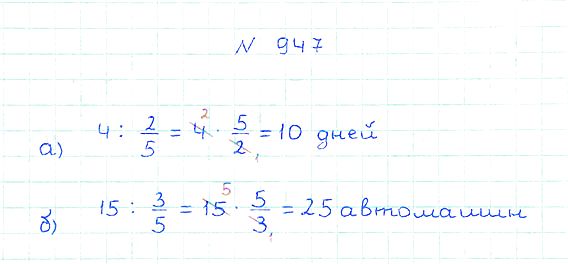 N 947
а) 4 : 2/5 = 4 2 · 5/2 1 = 10 дней
б) 15 : 3/5 = 15 5 · 5/3 1 = 25 автомашин